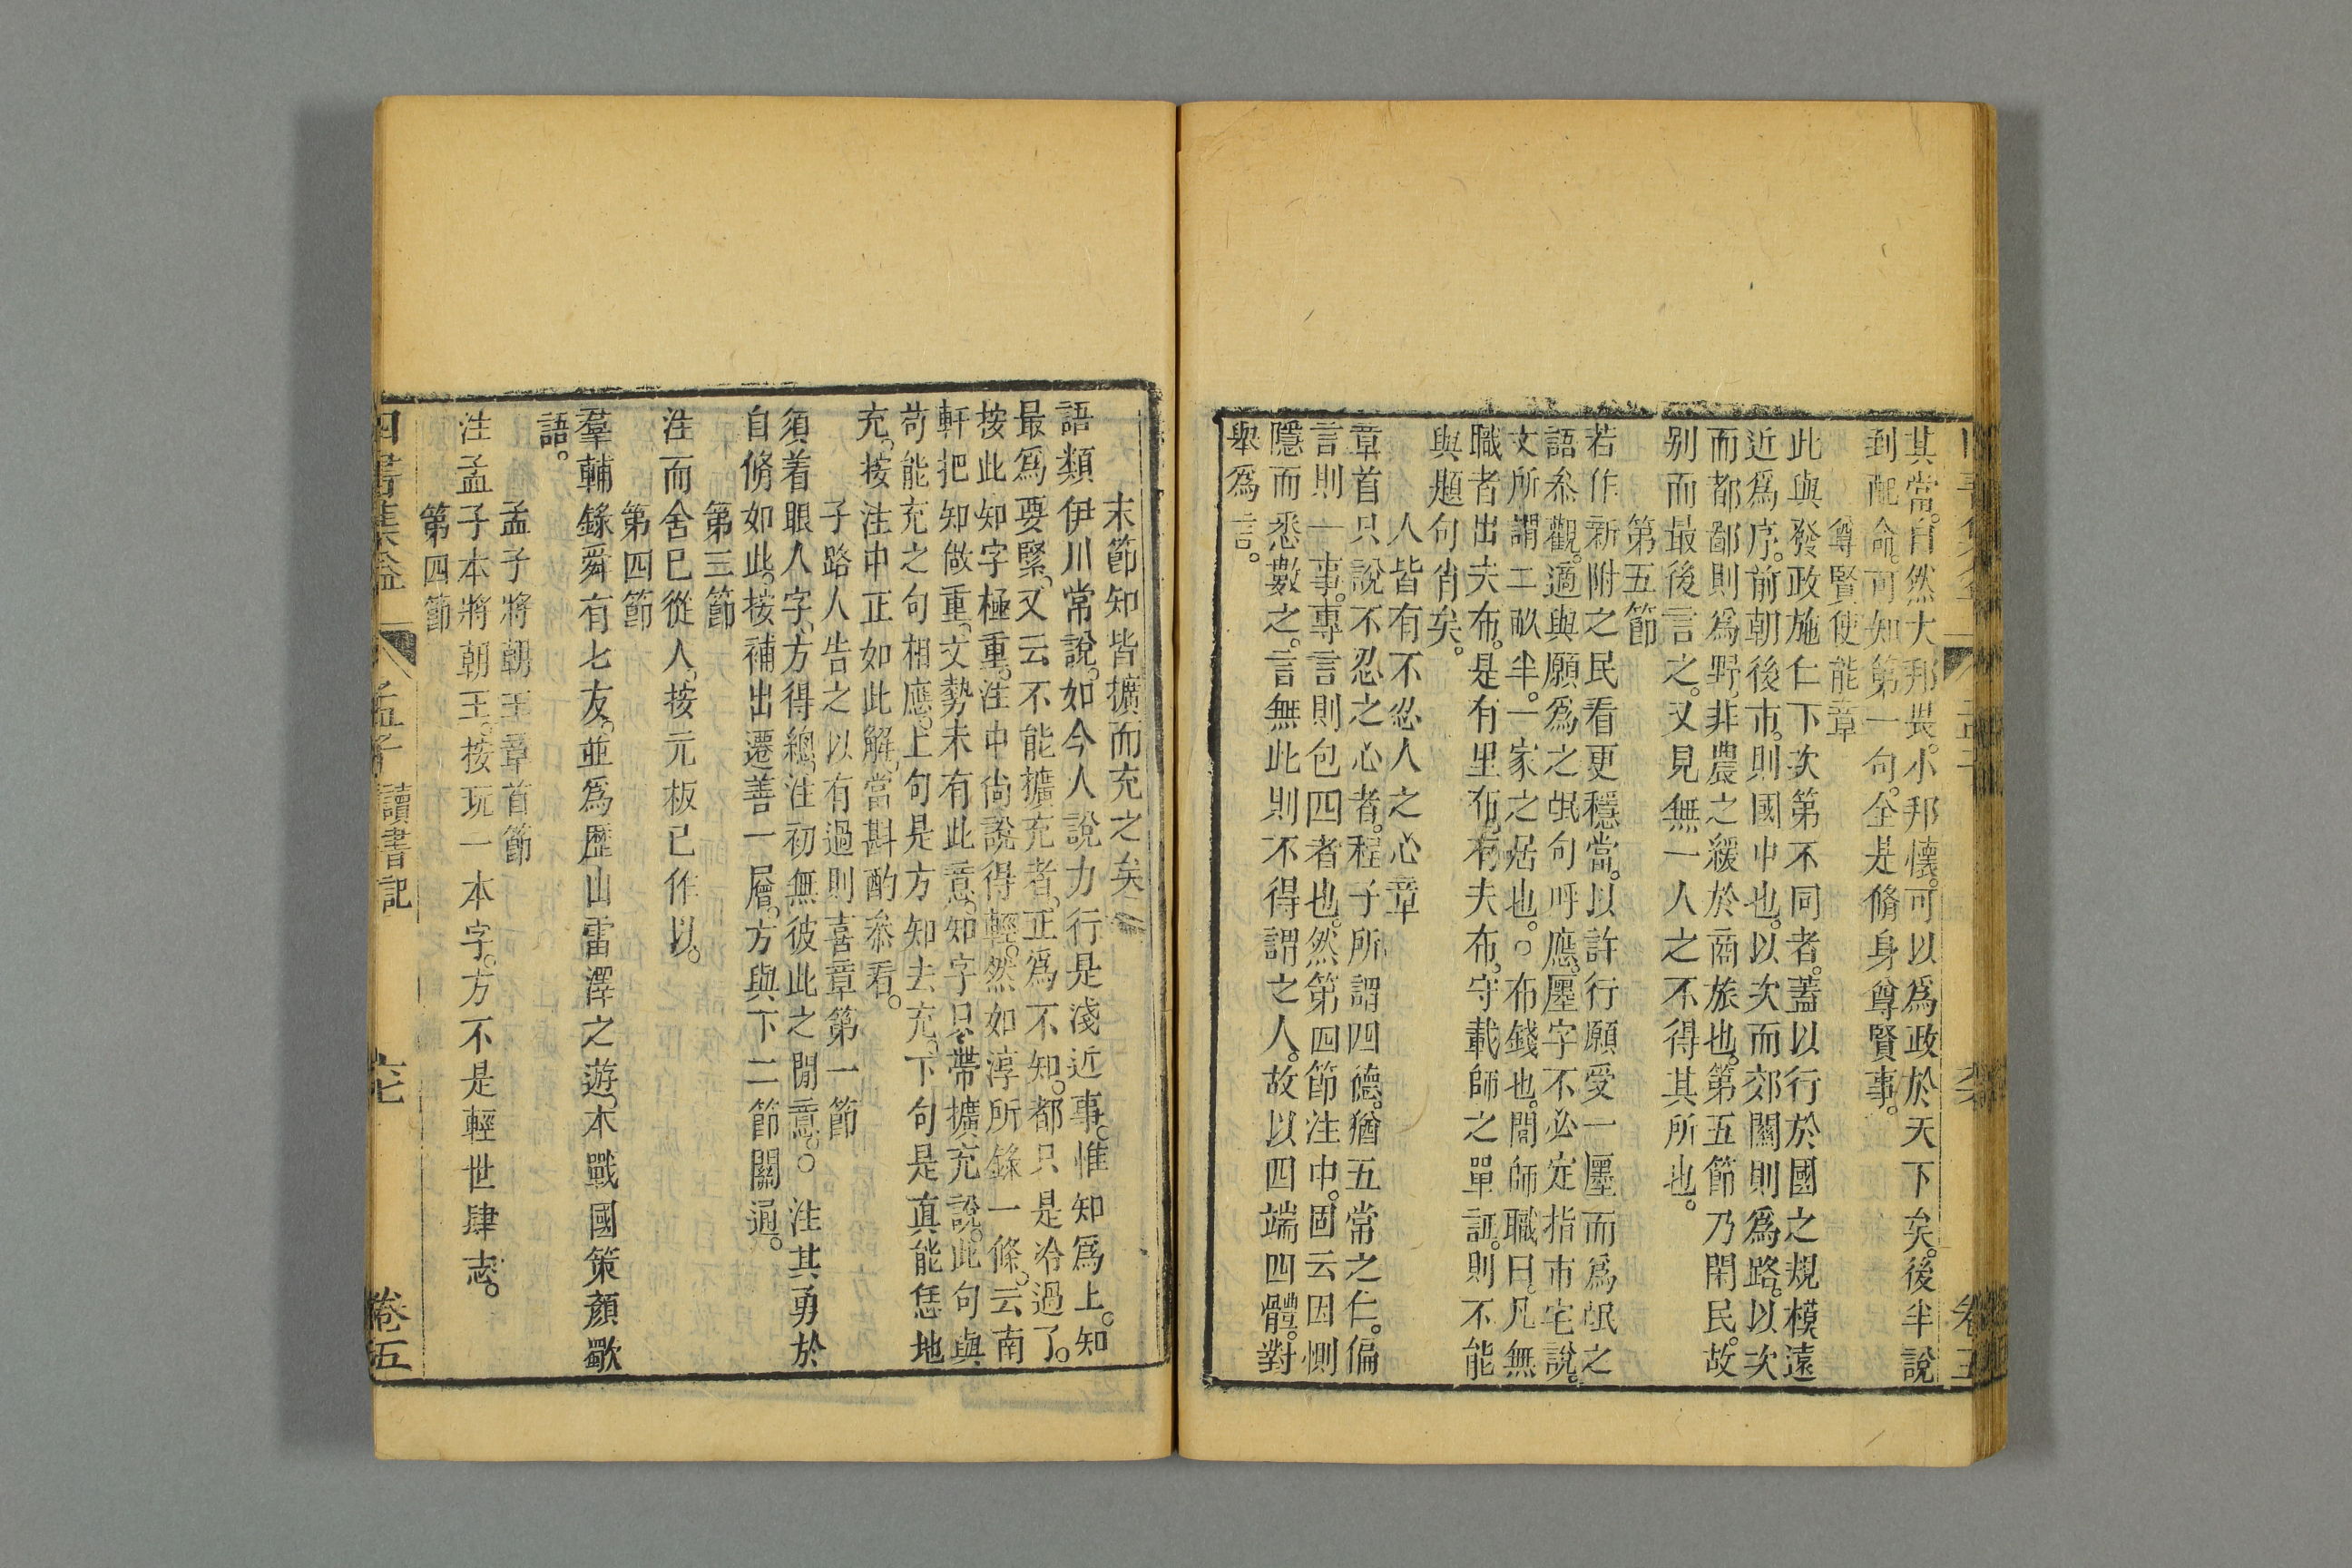 其當。自然大邦畏。小邦懷。可以爲政於天下矣。後半說
到配命。可知第一句。全是脩身尊賢事。
尊賢使能章
此與發政施仁下次第不同者。蓋以行於國之規模遠
近爲序。前朝後市。則國中也。以次而郊關則爲路。以次
而都鄙則爲野。非農之緩於商旅也。第五節乃閑民。故
别而最後言之。又見無一人之不得其所也。
第五節
若作新附之民看更穩當。以許行願受一廛而爲氓之
語叅觀。適與願爲之氓句呼應。廛字不必定指市宅說。
文所謂二畝半。一家之居也。○布錢也。閭師職曰。凡無
職者出夫布。是有里布。有夫布。守載師之單証。則不能
與題句肖矣。
人皆有不忍人之心章
章首只說不忍之心者。程子所謂四德。猶五常之仁。偏
言則一事。專言則包四者也。然第四節注中。固云因惻
隱而悉數之。言無此則不得謂之人。故以四端四體。對
舉爲言。
末節知皆擴而充之矣
語類伊川常說。如今人說力行是淺近事。惟知爲上。知
最爲要緊。又云不能擴充者。正爲不知。都只是冷過了。
按此知字極重。注中尚說得輕。然如淳所錄一條。云南
軒把知做重。文勢未有此意。知字只帶擴充說。此句與
苟能充之句相應。上句是方知去充。下句是眞能恁地
充。按注中正如此解。當斟酌叅看。
子路人告之以有過則喜章第一節
須着眼人字。方得緫注初無彼此之閒意。○ 注其勇於
自脩如此。按補出遷善一層。方與下二節關通。
第三節
注而舍已從人。按元板已作以。
第四節
羣輔錄舜有七友。並爲歷山雷澤之遊。本戰國策顏歜
語。
孟子將朝王章首節
注孟子本將朝王。按玩一本字。方不是輕世肆志。
第四節
四書 孟子 讀書記 卷五